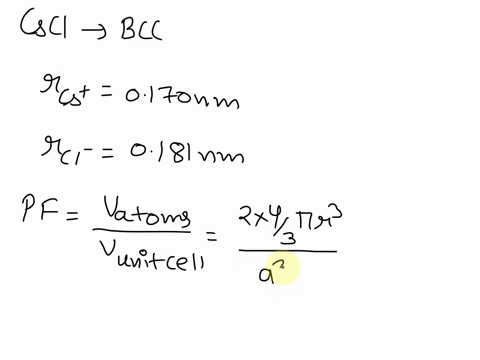 CsCl → BCC
r_Cs⁺ = 0.170nm
r_Cl⁻ = 0.181nm
PF = V_atoms / V_unitcell = 2×4/3 πr³ / a³